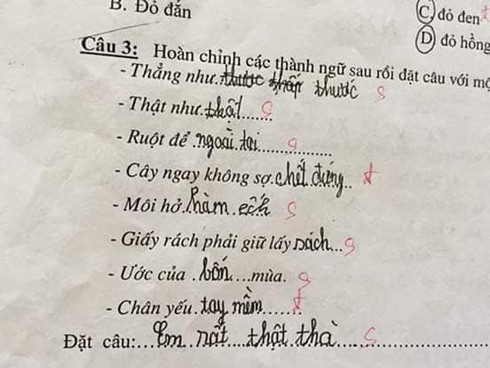 B. Đỏ đắn
C. đỏ đen
D đỏ hồng
Câu 3: Hoàn chỉnh các thành ngữ sau rồi đặt câu với mộ
- Thẳng như thước
- Thật như thật
- Ruột để ngoài tai
- Cây ngay không sợ chết đứng
- Môi hở hàm ếch
- Giấy rách phải giữ lấy sách
- Ước của bốn mùa.
- Chân yếu tay mềm
Đặt câu: Em rất thật thà